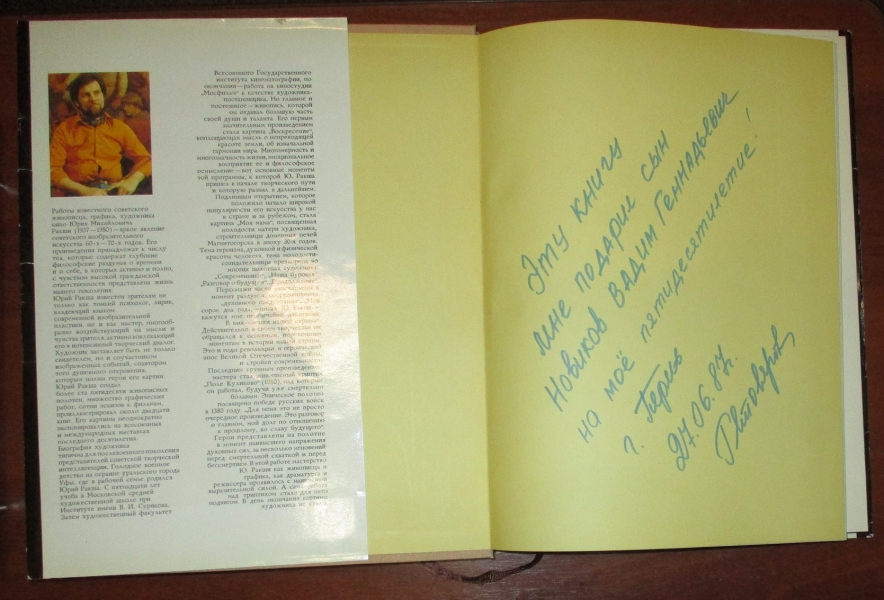 Работы известного советского
живописца, графика, художника
кино Юрия Михайловича
Ракши (1937—1980)—яркое явление
советского изобразительного
искусства 60-х—70-х годов. Его
произведения принадлежат к числу
тех, которые содержат глубокие
философские раздумья о времени
и о себе, в которых активно и полно,
с чувством высокой гражданской
ответственности представлена жизнь
нашего поколения.
Юрий Ракша известен зрителям не
только как тонкий психолог, лирик,
владеющий языком
современной изобразительной
пластики, но и как мастер, многооб-
разно воздействующий на мысли и
чувства зрителя, активно вовлекающий
его в интенсивный творческий диалог.
Художник заставляет быть не только
свидетелем, но и соучастником
изображенных событий, соавтором
того душевного откровения,
которым полны герои его картин.
Юрий Ракша создал
более ста пятидесяти живописных
полотен, множество графических
работ, сотни эскизов к фильмам,
проиллюстрировал около двадцати
книг. Его картины неоднократно
экспонировались на всесоюзных
и международных выставках
последнего десятилетия.
Биография художника
типична для послевоенного поколения
представителей советской творческой
интеллигенции. Голодное военное
детство на окраине уральского города
Уфы, где в рабочей семье родился
Юрий Ракша. С пятнадцати лет
учеба в Московской средней
художественной школе при
Институте имени В. И. Сурикова.
Затем художественный факультет
Всесоюзного Государственного
института кинематографии, по
окончании—работа на киностудии
„Мосфильм“ в качестве художника-
постановщика. Но главное и
постоянное—живопись, которой
он отдавал большую часть
своей души и таланта. Его первым
значительным произведением
стала картина „Воскресение“,
воплощающая мысль о непреходящей
красоте земли, об изначальной
гармонии мира. Многомерность и
многозначность жизни, эмоциональное
восприятие ее и философское
осмысление—вот основные моменты
той программы, к которой Ю. Ракша
пришел в начале творческого пути
и которую развил в дальнейшем.
Подлинным открытием, которое
положило начало широкой
популярности его искусства у нас
в стране и за рубежом, стала
картина „Моя мама“, посвященная
молодости матери художника,
строительницы доменных печей
Магнитогорска в эпоху 30-х годов.
Тема героизма, духовной и физической
красоты человека, тема молодости-
созидательницы
„Современники“,
„Разговор о будущем“,
момент
Действительно,
обращался к
истории нашей страны.
Это и годы революции, и героический
эпос Великой Отечественной войны,
и стройки современности.
Последним
мастера стал
„Поле Куликово“ (1980), над которым
он работал, будучи уже смертельно
больным. Эпическое полотно
посвящено победе русских войск
в 1380 году. „Для меня это не просто
очередное произведение. Это разговор
о главном, мой долг по отношению
к прошлому, во славу будущего“.
Герои представлены на полотне
в момент наивысшего напряжения
духовных сил, за несколько мгновений
перед смертельной схваткой и перед
бессмертием. В этой работе мастерство
Ю. Ракши как живописца и
графика, как драматурга и
режиссера проявилось с наивысшей
выразительной силой. А сама работа
над триптихом стала для него
подвигом. В день окончания картины
художника не стало.
Эту книгу
мне подарил сын
Новиков Вадим Геннадьевич
на моё пятидесятилетие!
г. Пермь
27.06.87г.